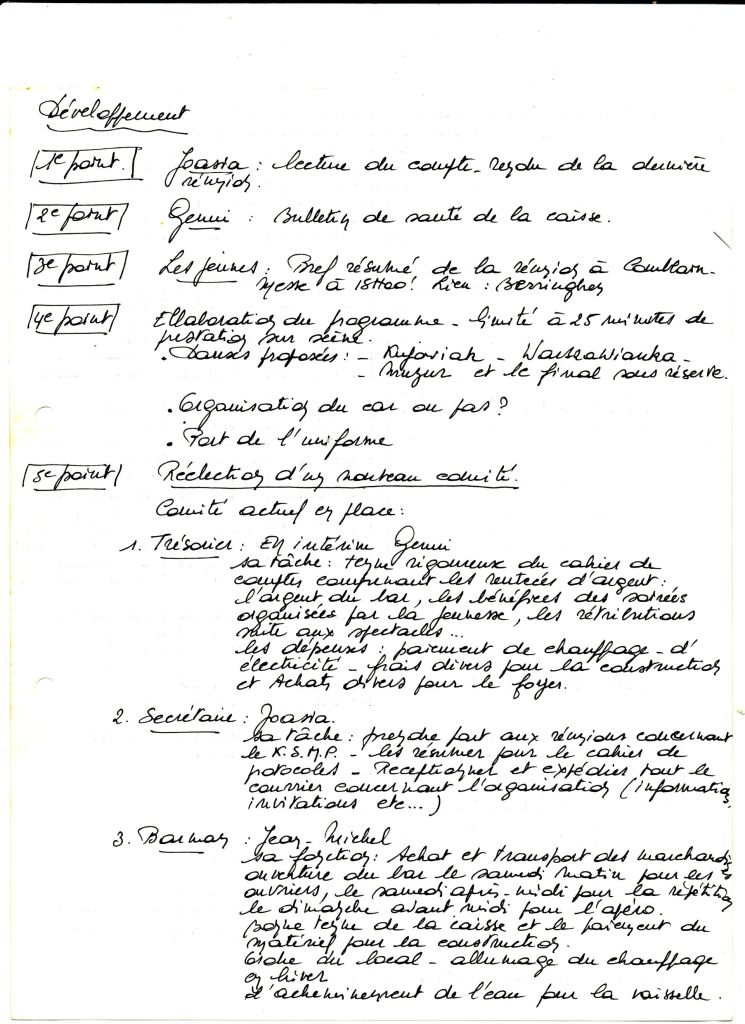 Développement
1e point. Joasia : lecture du compte-rendu de la dernière
réunion.
2e point Genui : Bulletin de santé de la caisse.
3e point Les jeunes : Bref résumé de la réunion à
Messe à 15H00! Lieu : Berringhen
4e point Ellaboration du programme - limité à 25 minutes de
prestation sur scène.
• Danses proposées : - Kujawiak - Warszawianka -
- Mazur et le final sous réserve.
• Organisation du car ou pas ?
• Port de l'uniforme
5e point Réélection d'un nouveau comité.
Comité actuel en place :
1. Trésorier : En intérim Genui
sa tâche : tenue rigoureuse du cahier de
comptes comprenant les rentrées d'argent :
l'argent du bar, les bénéfices des soirées
organisées par la jeunesse, les rétributions
suite aux spectacles...
les dépenses : paiement de chauffage - d'
électricité - frais divers pour la construction
et Achats divers pour le foyer.
2. Secrétaire : Joasia.
sa tâche : prendre part aux réunions concernant
le K.S.M.P. - les résumer pour le cahier de
protocoles - Receptionner et expédier tout le
courrier concernant l'organisation (information,
invitations etc...)
3. Barman : Jean-Michel
sa fonction : Achat et transport des marchandises
ouverture du bar le samedi matin pour les
ouvriers, le samedi après-midi pour la répétition
le dimanche avant midi pour l'apéro.
bonne tenue de la caisse et le paiement du
matériel pour la construction.
Ordre du local - allumage du chauffage
en hiver
L'acheminement de l'eau pour la vaisselle.